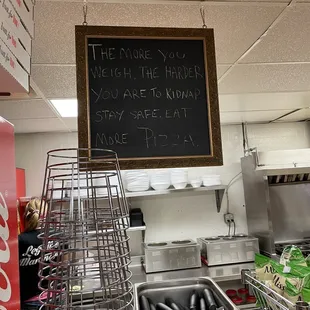 THE MORE YOU
WEIGH, THE HARDER
YOU ARE TO KIDNAP
STAY SAFE. EAT
MORE PIZZA.